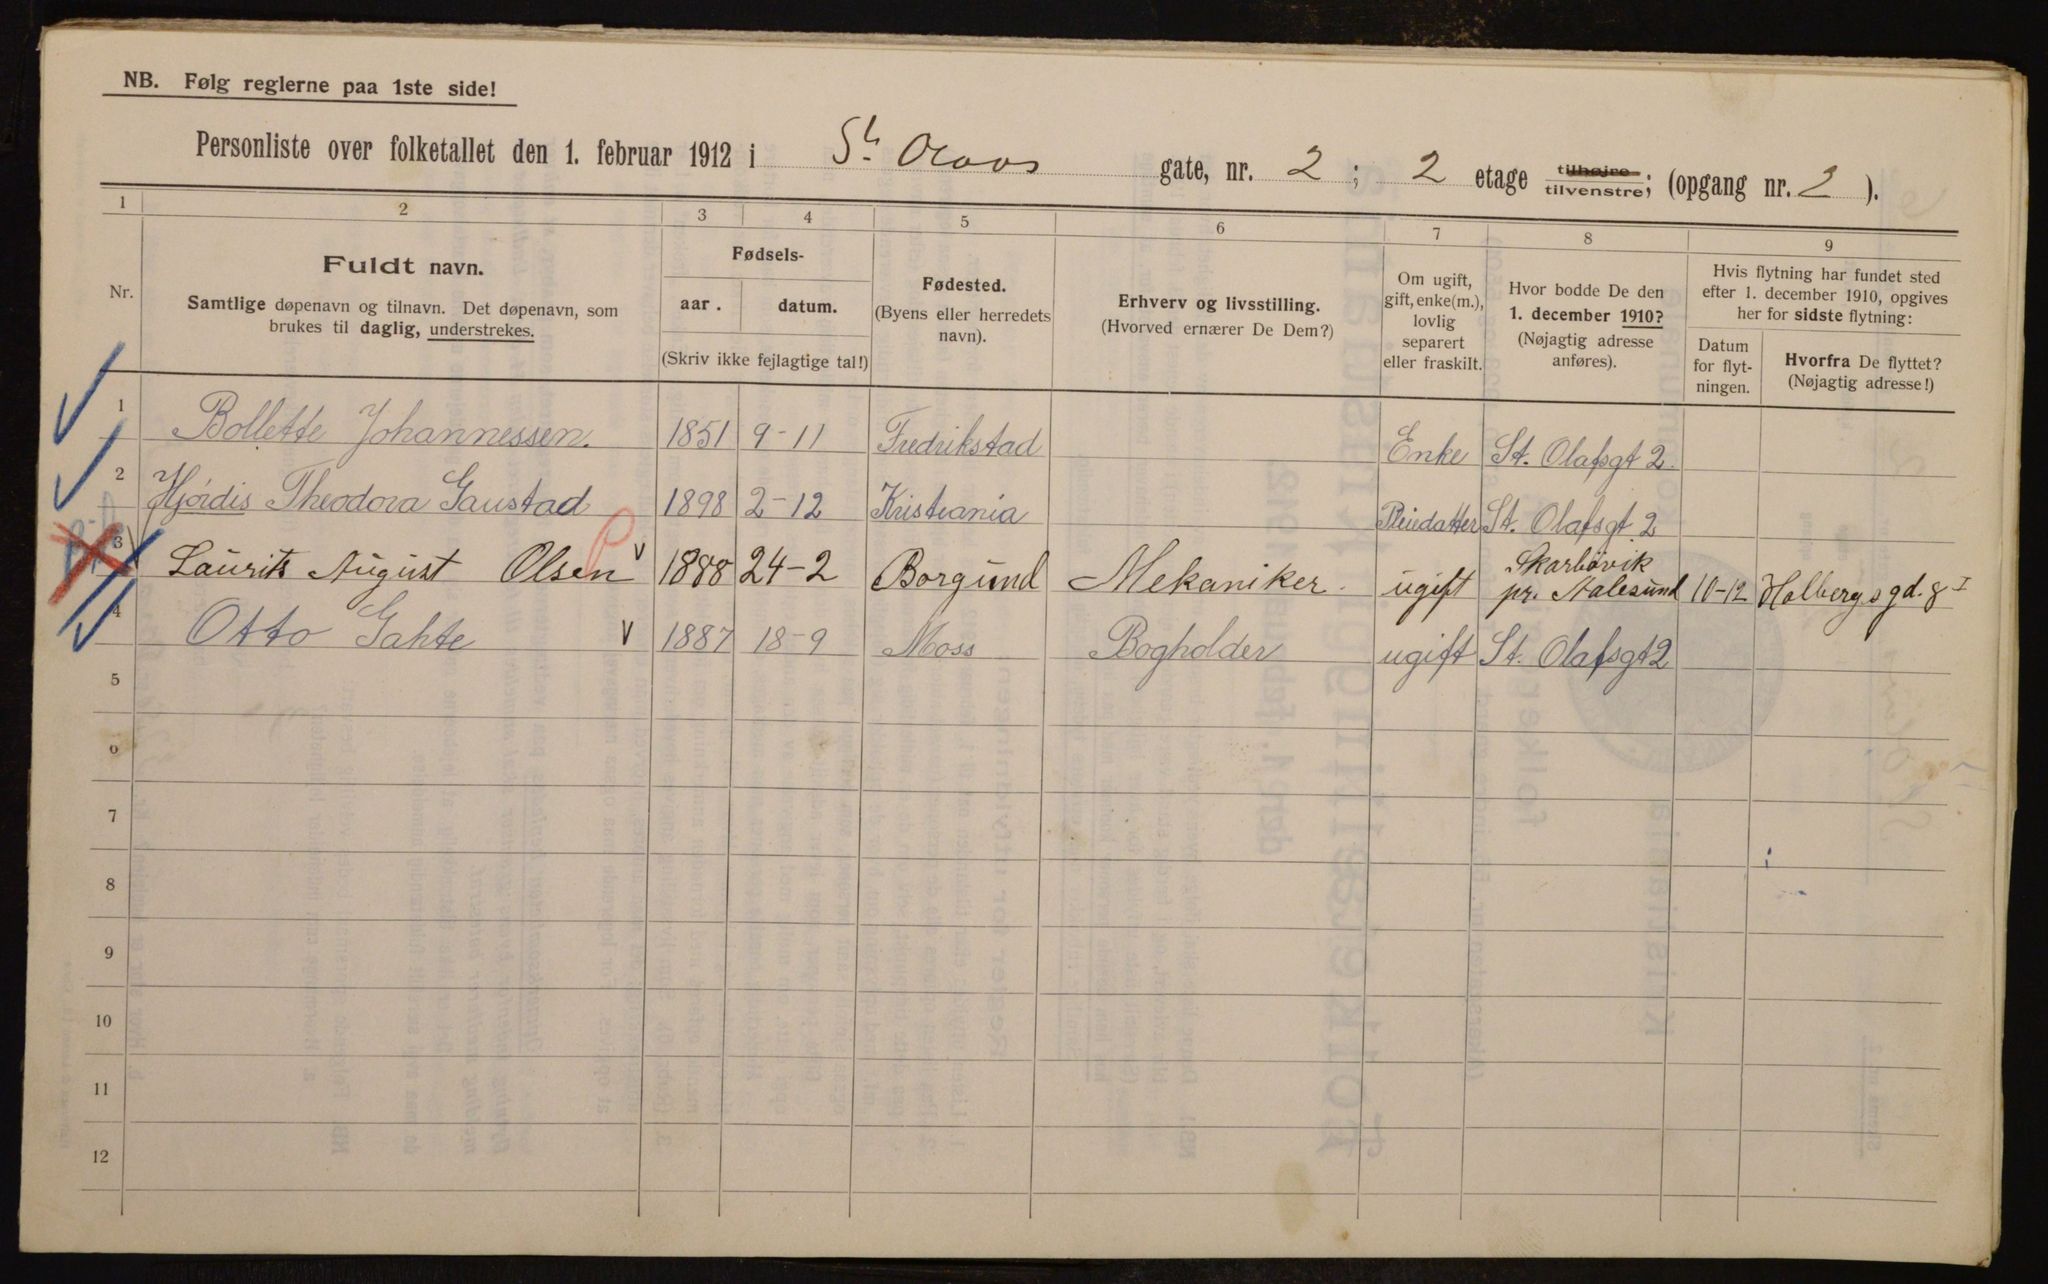 NB. Følg reglerne paa 1ste side!
Personliste over folketallet den 1. februar 1912 i St. Olavs gate, nr. 2 ; 2 etage tilhøjre tilvenstre; (opgang nr. 2 ).
1 2 3 4 5 6 7 8 9
Nr.
Fuldt navn.
Samtlige døpenavn og tilnavn. Det døpenavn, som
brukes til daglig, understrekes.
Fødsels-
aar. datum.
(Skriv ikke fejlagtige tal!)
Fødested.
(Byens eller herredets
navn).
Erhverv og livsstilling.
(Hvorved ernærer De Dem?)
Om ugift,
gift, enke(m.),
lovlig
separert
eller fraskilt.
Hvor bodde De den
1. december 1910?
(Nøjagtig adresse
anføres).
Hvis flytning har fundet sted
efter 1. december 1910, opgives
her for sidste flytning:
Datum
for flyt-
ningen.
Hvorfra De flyttet?
(Nøjagtig adresse!)
1 Bollette Johannessen. 1851 9-11 Fredrikstad Enke St. Olafsgt 2.
2 Hjördis Theodora Gaustad 1898 2-12 Kristiania Pleiedatter St. Olafsgt. 2
3 Laurits August Olsen 1888 24-2 Borgund Mekaniker. ugift Skarbövik pr. Aalesund 10-12 Holbergsgd. 8 I
4 Otto Gahte 1887 18-9 Moss Bogholder ugift St. Olafsgt 2
5
6
7
8
9
10
11
12